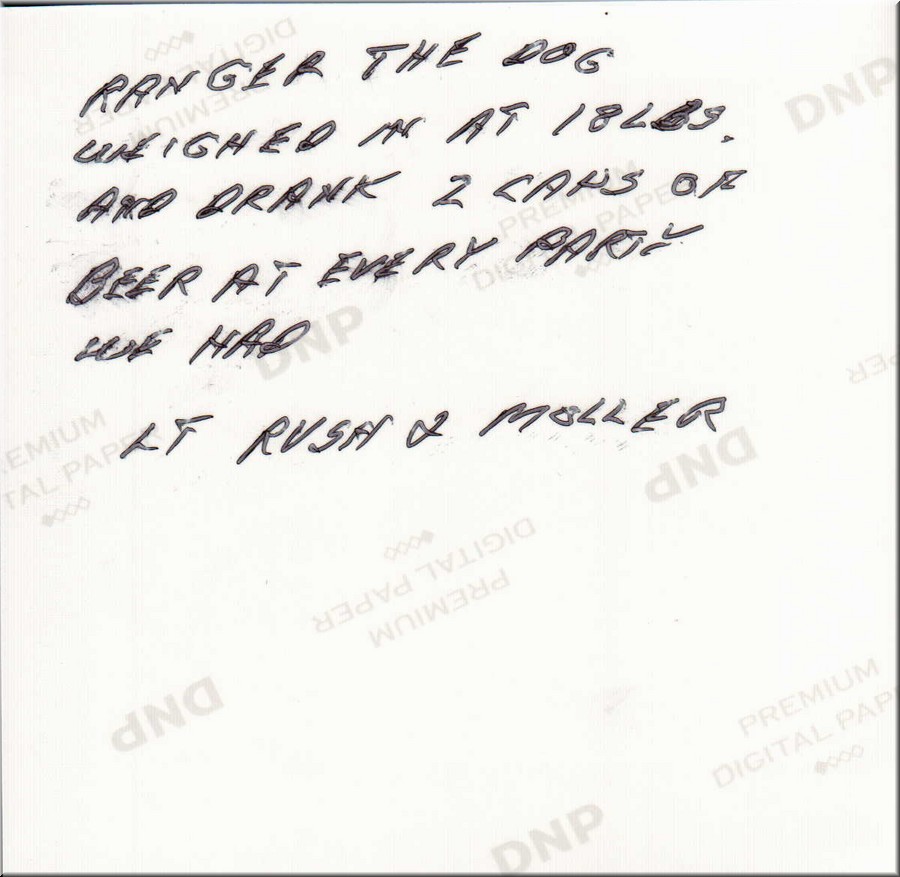 RANGER THE DOG
WEIGHED IN AT 18LBS.
AND DRANK 2 CANS OF
BEER AT EVERY PARTY
WE HAD
LT RUSH & MOLLER
DNP
PREMIUM
DIGITAL PAPER
DNP
PREMIUM
DIGITAL PAPER
DNP
PREMIUM
DIGITAL PAPER
DNP
PREMIUM
DIGITAL PAPER
DNP
PREMIUM
DIGITAL PAPER
DNP